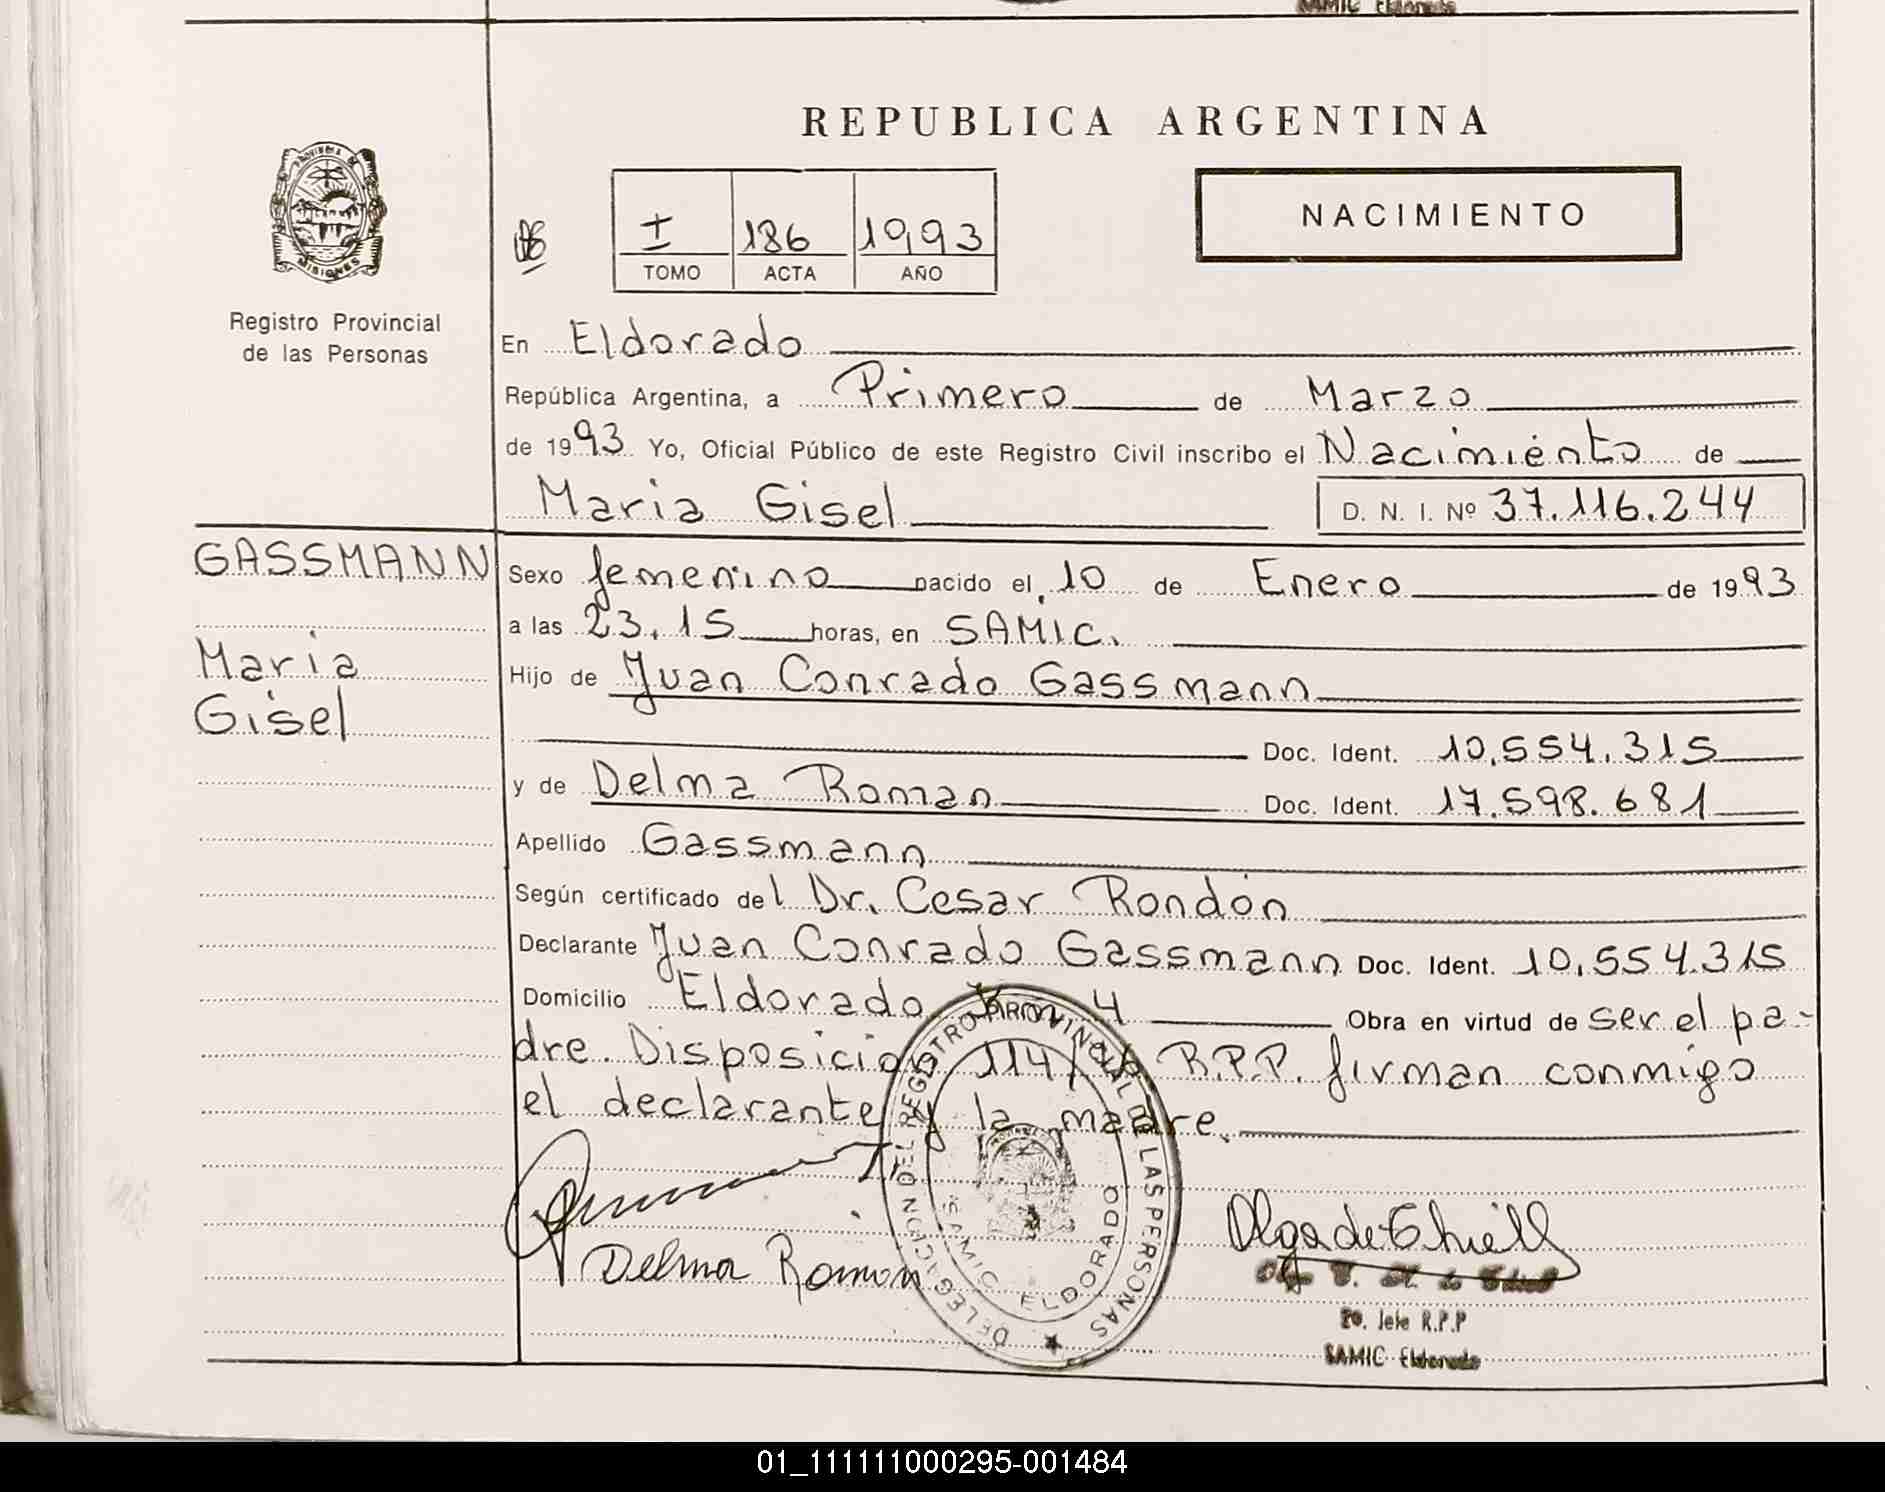 SAMIC Eldorado
REPUBLICA ARGENTINA
PROVINCIA DE
MISIONES
Registro Provincial
de las Personas
I 186 1993
TOMO ACTA AÑO
NACIMIENTO
En Eldorado
República Argentina, a Primero de Marzo
de 1993 Yo, Oficial Público de este Registro Civil inscribo el Nacimiento de
Maria Gisel D. N. I. Nº 37.116.244
GASSMANN
Maria
Gisel
Sexo femenino nacido el 10 de Enero de 1993
a las 23.15 horas, en SAMIC.
Hijo de Juan Conrado Gassmann
Doc. Ident. 10.554.315
y de Delma Roman Doc. Ident. 17.598.681
Apellido Gassmann
Según certificado del Dr. Cesar Rondón
Declarante Juan Conrado Gassmann Doc. Ident. 10.554.315
Domicilio Eldorado Km 4 Obra en virtud de ser el pa-
dre. Disposición 114/ R.P.P. firman conmigo
el declarante y la madre.
DELEGACION DEL REGISTRO PROVINCIAL DE LAS PERSONAS
SAMIC ELDORADO
Delma Roman
Olga de Thiell
Jefe R.P.P
SAMIC Eldorado
01_111111000295-001484